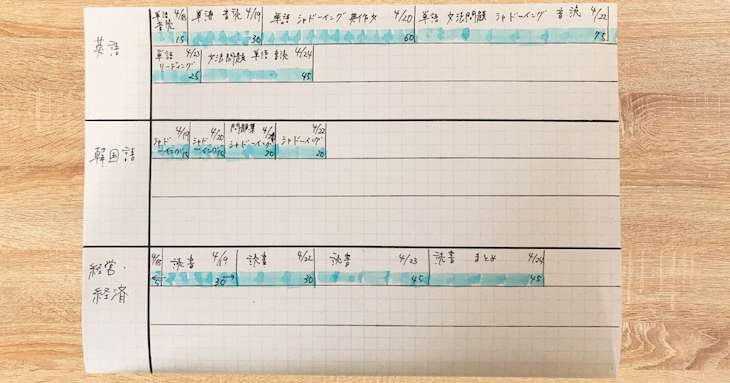 英語
単語 4/18 単語 音読 4/19 単語 シャドーイング 英作文 4/20 単語 文法問題 シャドーイング 音読 4/22
音読 15 30 60 75
単語 4/23 文法問題 単語 音読 4/24
リーディング 25 45
韓国語
4/19 4/20 問題集 4/22
シャドーイング 15 シャドーイング 15 シャドーイング 20 シャドーイング 20
経営・経済
4/18 読書 4/19 読書 4/22 読書 4/23 読書 まとめ 4/24
5 30 30 45 45